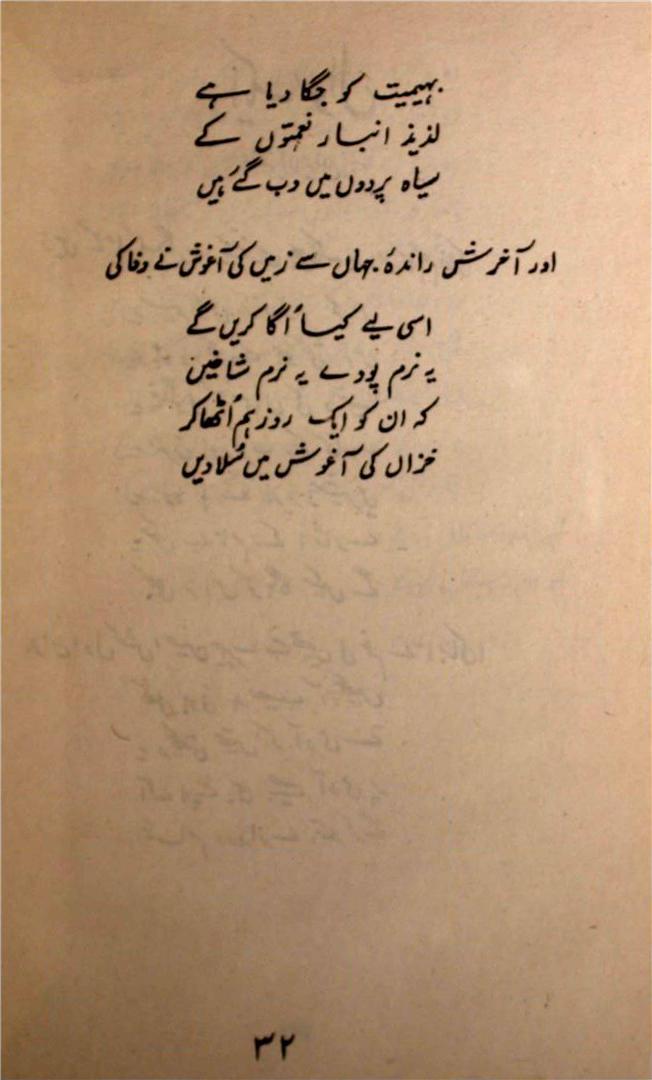 بہیمیت کو جگا دیا ہے
لذیذ انبار نعمتوں کے
سیاہ پردوں میں دب گئے ہیں
اور آخرش راندۂ جہاں سے زمیں کی آغوش نے وفا کی
اسی لیے کیا اُگا کریں گے
یہ نرم پودے یہ نرم شاخیں
کہ ان کو ایک روز ہم اُٹھا کر
خزاں کی آغوش میں سُلا دیں
۳۲